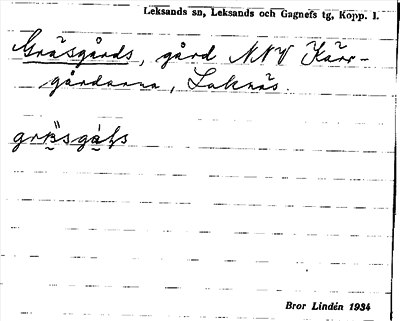 Leksands sn, Leksands och Gagnefs tg, Kopp. l.
Gräsgårds, gård NNV Kärr-
gårdarna, Laknäs.
Bror Lindén 1934